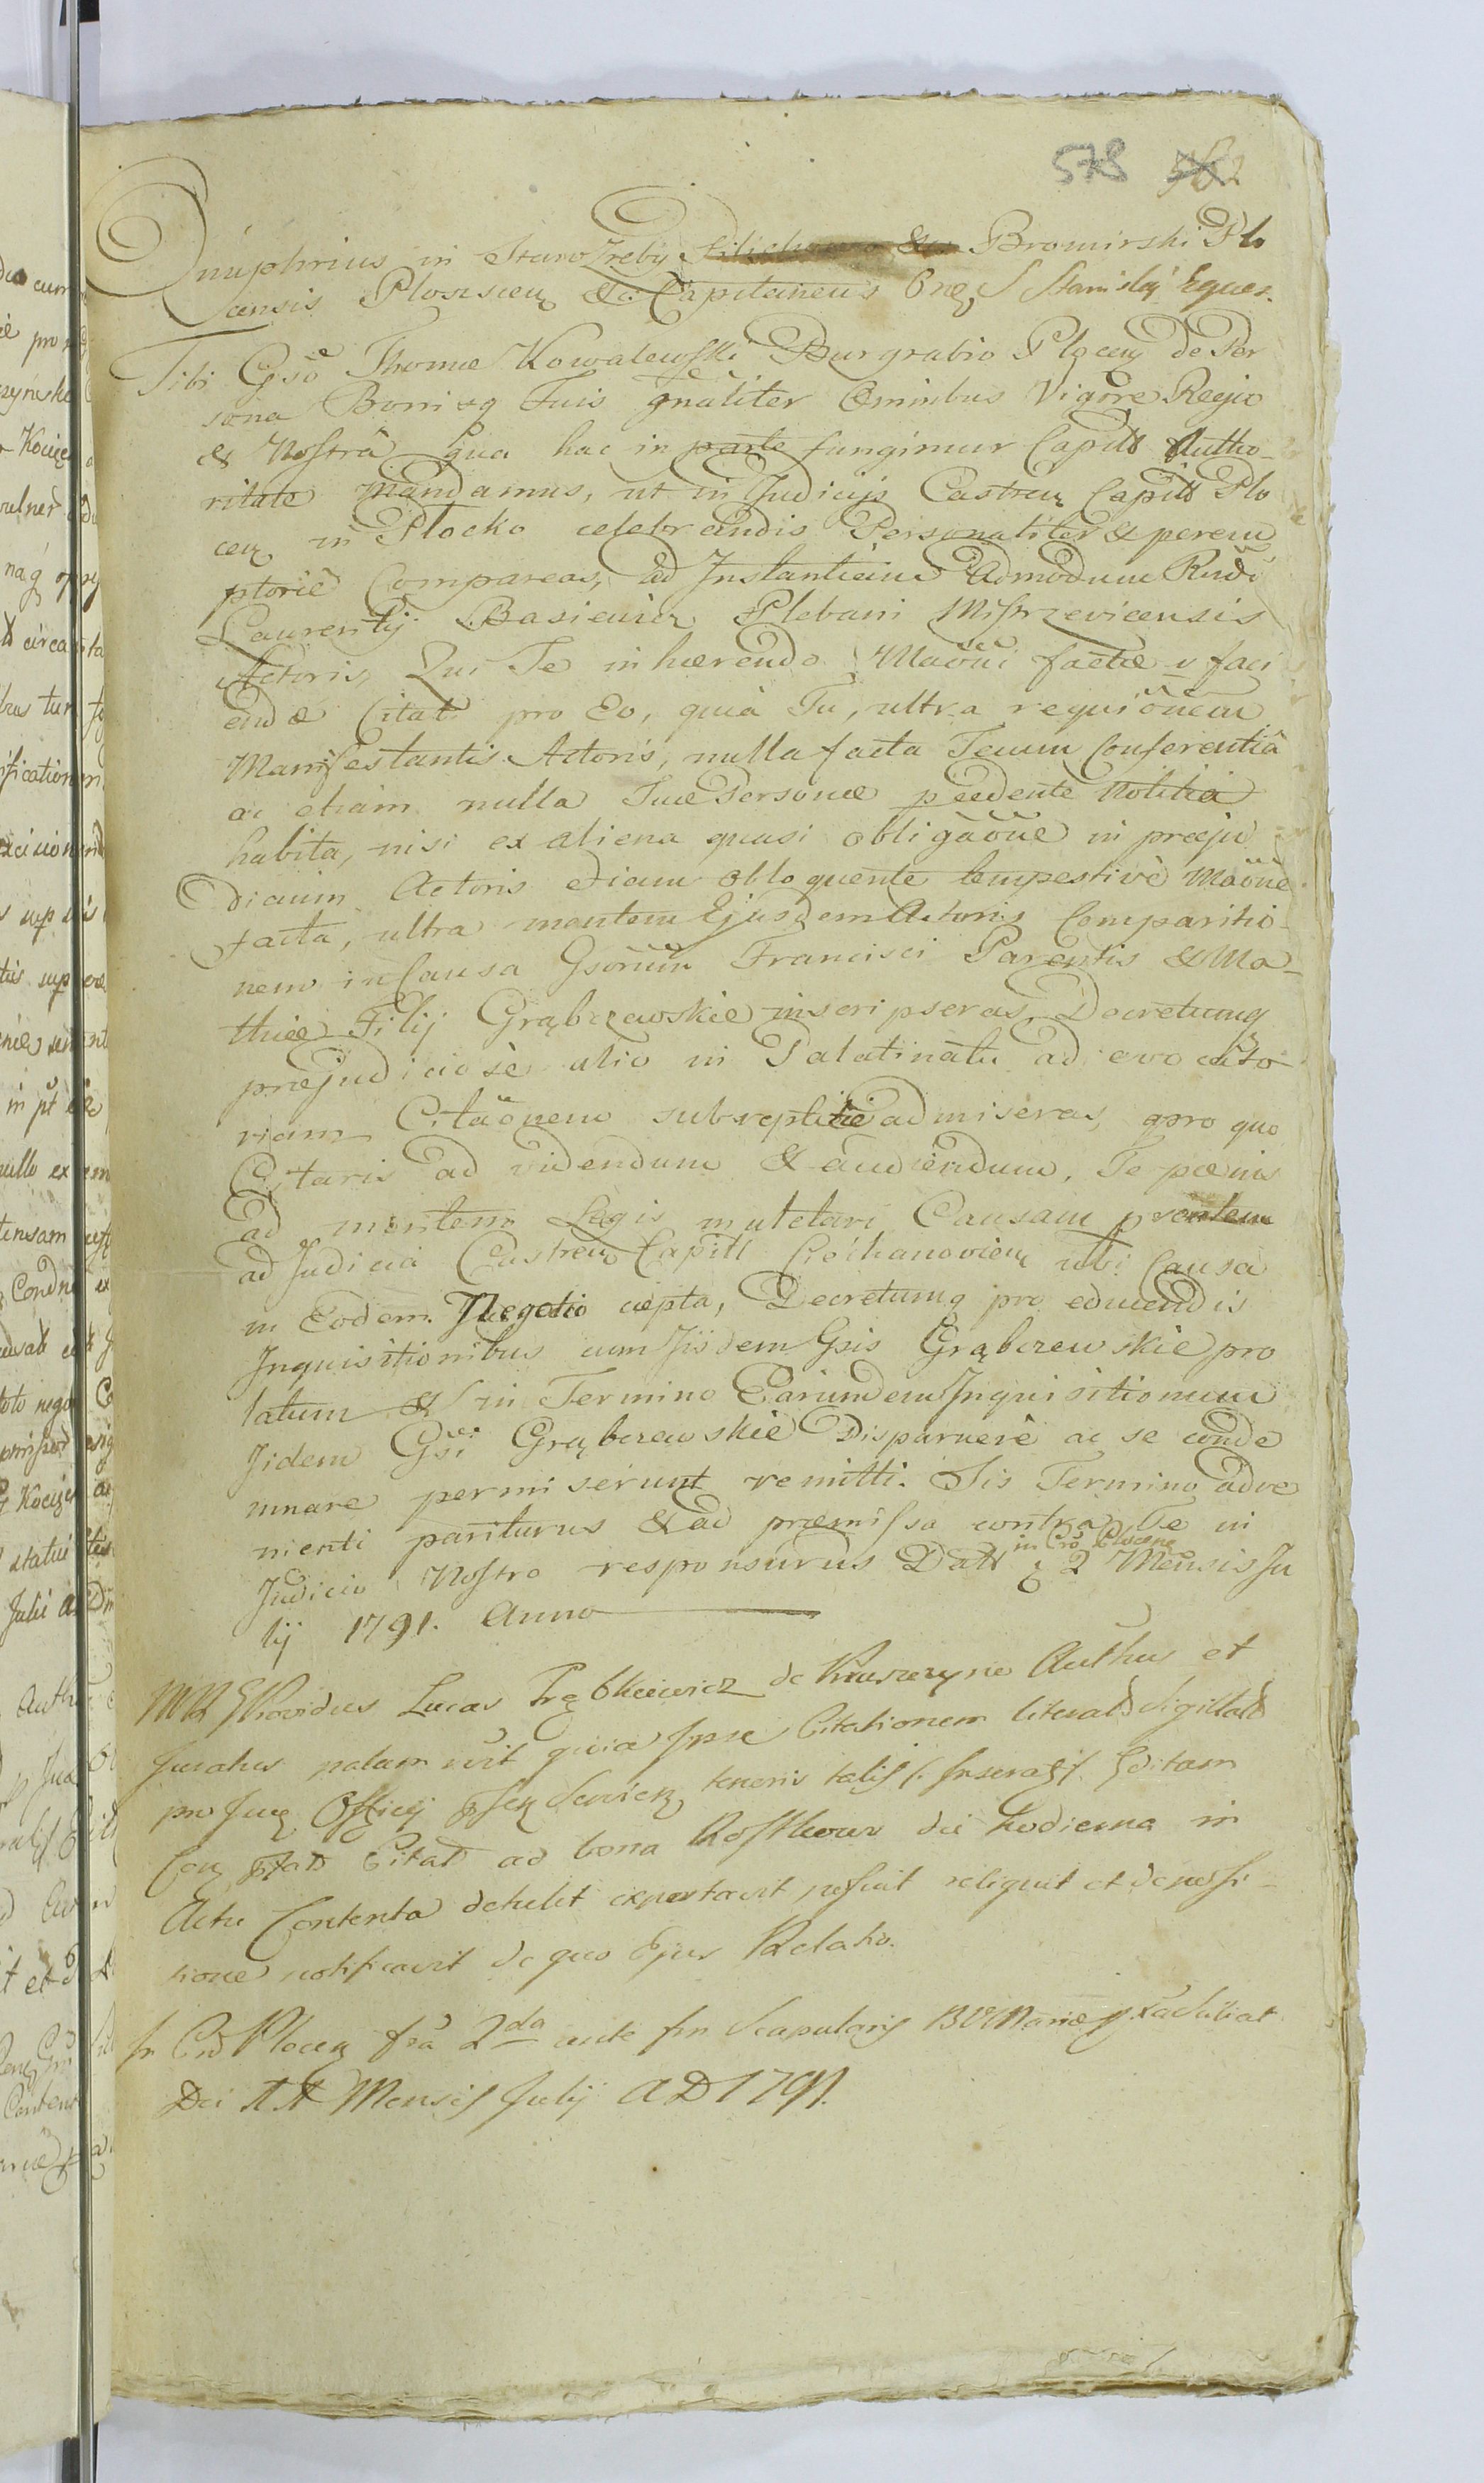 578 562
Onuphrius in StaroZreby Bromirski Plo
censis Ploscien &c. Capitaneus Ord S Stanislai Eques.
Tibi Gso Thomæ Kowalewski Burgrabio Plocen de Per
sona Bonisq Tuis gnaliter Omnibus Vigore Regia
et Nostrâ qua hac in parte fungimur Capitt Autho-
ritate Mandamus, ut in Judicijs Castren Capitt Plo
cen in Plocko celebrandis Personaliter & perem
ptorie Compareas, ad Instantiam Admodum Rndi
Laurentij Basiewicz Plebani Misrzevicensis
Actoris, Qui Te inhærendo Maoni factæ v faci
endæ Citat pro Eo, quia Tu, ultra requiõnem
Manifestantis Actoris, nulla facta Tecum Conferentiâ
ac etiam nulla Tuæ Personæ pcedente Notitia
habita, nisi ex aliena quasi obligaõne in præju
dicium Actoris etiam obloquente tempestivè Maõne
facta, ultra mentem Ejusdem Actoris Comparitio-
nem in Causa Gsorum Francisci Parentis & Ma-
thiæ Filij Grąbczewskie inscripseras, Decretumq
præjudiciosè alio in Palatinatu ad evocato
riam Citaõnem subreptitiè admiseras, pro quo
Citaris ad videndum & audiendum, Te pænis
ad mentem Legis mulctari Causam psentem
ad Judicia Castren Capitt Ciechanovien ubi Causa
in Eodem Negotio cæpta, Decretumq pro educendis
Inquisitionibus cum Iisdem Gsis Grąbczewskie pro
latum & in Termino Earundem Inquisitionum
Iidem Gsi Grąbczewskie Disparuerè ac se conde
mnare permiserunt remitti. Sis Termino adve
nienti pariturus & ad præmissa contra Te in
Judicio Nostro responsurus Datt in Cro Plocen 2 Mensis Ju
lij 1791. Anno
Providus Lucas de Kruszczyne Authus et
Juratus palam rvit quia Ipse Citationem literatt Sigillatt
pro Officij tenoris talis
Citatt ad bona Rostkowo die hodierna in
Actu Contenta detulit exportavit posuit reliquit et de possi-
tione notificavit de quo Ejus Relatio.
In Plocen fra 2da ante fm Scapularis B V Mariæ
Dei Mensis Julij A D 1791.